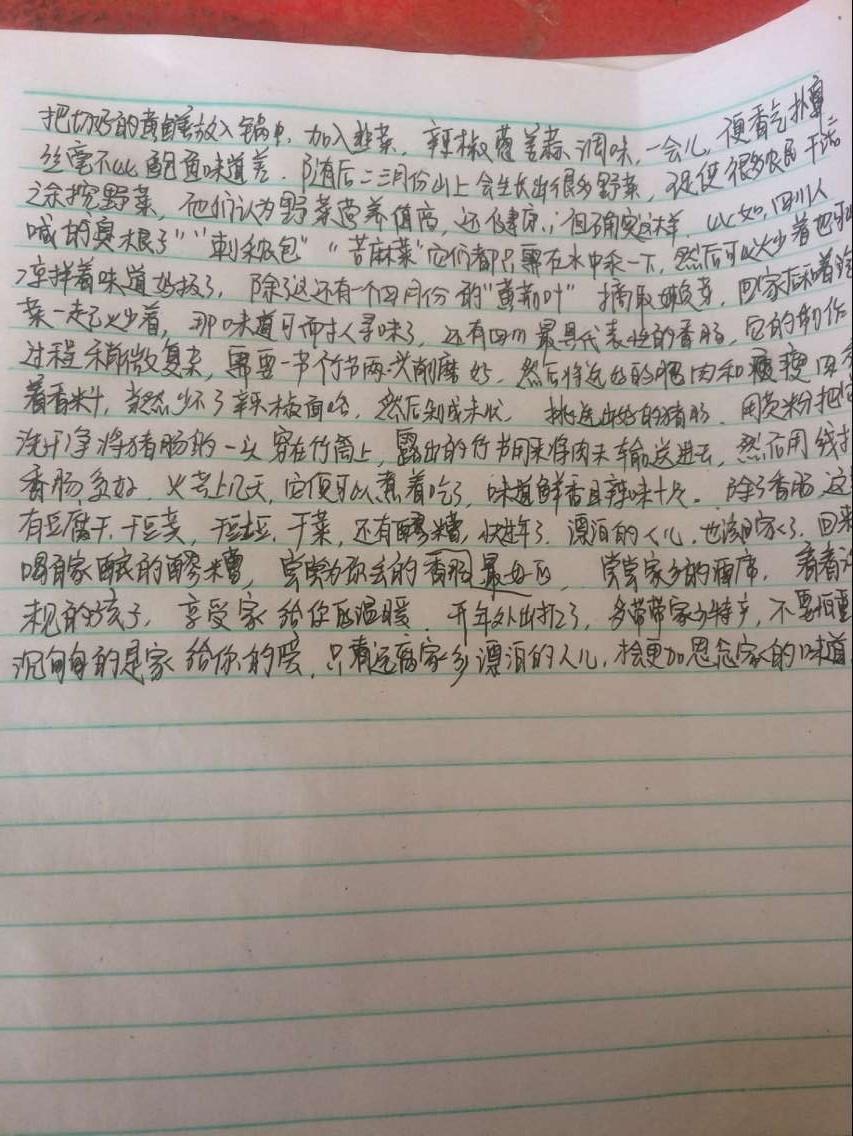 把切好的黄鳝放入锅中，加入韭菜，辣椒葱姜蒜调味，一会儿，便香气扑鼻
丝毫不比鲍鱼味道差．随后二三月份山上会生长出很多野菜，促使很多农民干活
之余挖野菜，他们认为野菜营养价值高，还健康，但确实这样．比如，四川人
喊的臭根子""刺 包" "苦麻菜"它们都只需在水中 一下，然后可以炒着也可以
凉拌着味道好极了，除了这还有一个四月份的"黄荆叶" 摘取嫩芽，回家后和着
菜一起炒着，那味道可而寻味了，还有四川最具代表性的香肠，它的制作
过程稍微复杂，需要一节竹节两头削磨好，然后将选好的肥肉和瘦肉
着香料，当然少不了辣椒面哈，然后剁成末状．挑选出好的猪肠．用 粉把
洗干净将猪肠的一头穿在竹筒上，露出的竹节用来将肉末输送进去，然后用线
香肠 好．火 上几天，它便可以煮着吃了，味道鲜香且辣味十足．除了香肠，这
有豆腐干，干豆 ，干 ，干菜，还有醪糟，快过年了．漂泊的人儿，也该回家了．回来
喝自家酿的醪糟，尝尝为你去的香肠最好的，尝尝家乡的酒席，看看
未见的孩子，享受家给你的温暖．开年外出打工了，多带带家乡特产，不要怕重
沉甸甸的是家给你的爱，只有远离家乡漂泊的人儿，才会更加思念家的味道